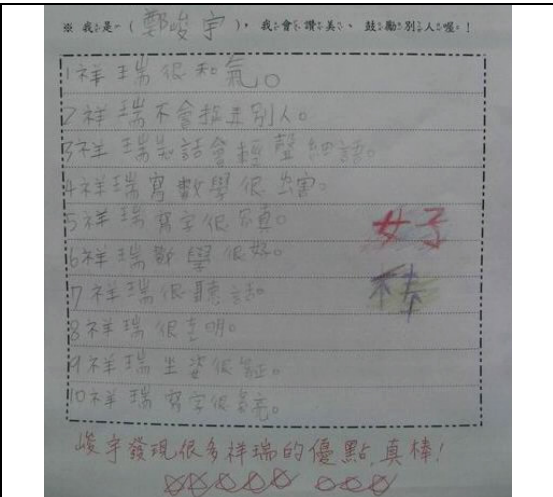 ※ 我是(鄭峻宇),我會讚美、鼓勵別人喔!
1祥瑞很和氣。
2祥瑞不會指正別人。
3祥瑞說話會輕聲細語。
4祥瑞寫數學很
5祥瑞寫字很認真。
6祥瑞數學很好。
7祥瑞很聽話。
8祥瑞很
9祥瑞坐姿很端正。
10祥瑞寫字很漂亮。
好
棒
峻宇發現很多祥瑞的優點,真棒!